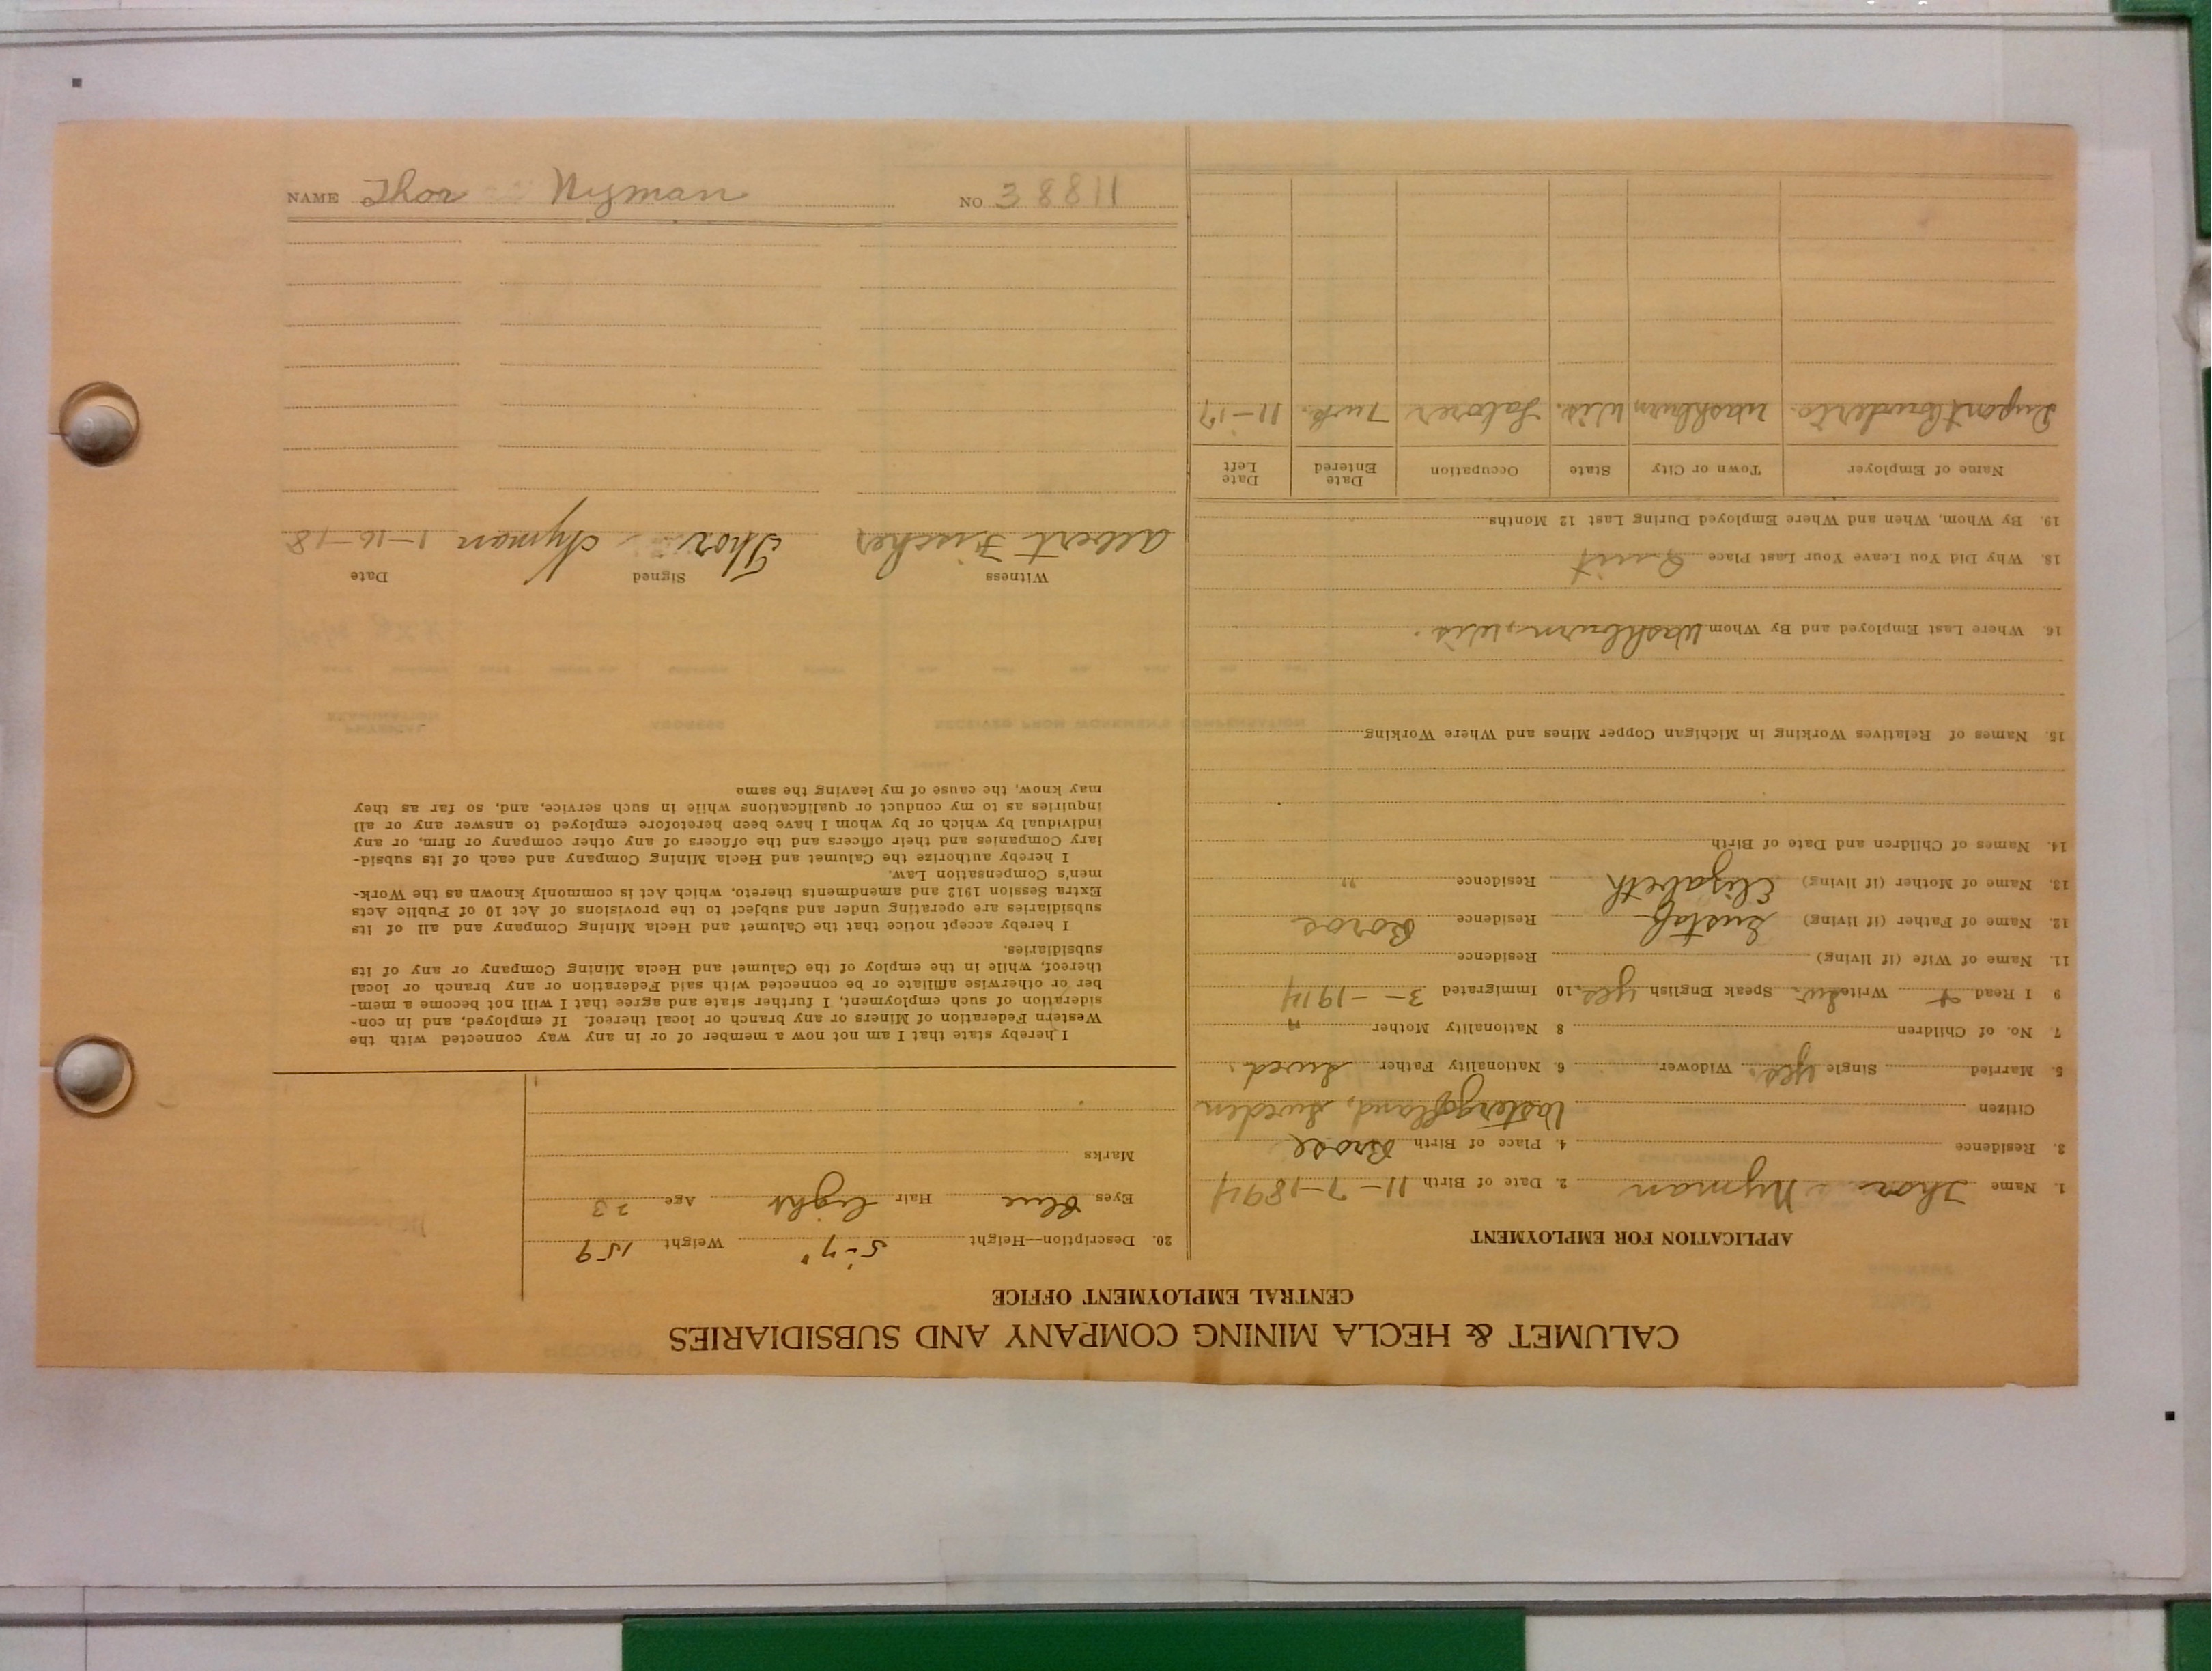 CALUMET & HECLA MINING COMPANY AND SUBSIDIARIES
CENTRAL EMPLOYMENT OFFICE
APPLICATION FOR EMPLOYMENT
1. Name Thor Nyman 2. Date of Birth 11-7-1894
3. Residence 4. Place of Birth
Citizen Vastergotland, Sweden
5. Married Single yes. Widower 6. Nationality Father Swed.
7. No. of Children 8 Nationality Mother "
9 I Read & Write Sw. Speak English yes. 10 Immigrated 3-1914
11. Name of Wife (if living) Residence
12. Name of Father (if living) Gustaf Residence
13. Name of Mother (if living) Elizabeth Residence "
14. Names of Children and Date of Birth
15. Names of Relatives Working in Michigan Copper Mines and Where Working
16. Where Last Employed and By Whom Washburn, Wis.
18. Why Did You Leave Your Last Place Quit
19. By Whom, When and Where Employed During Last 12 Months
Name of Employer Town or City State Occupation Date Entered Date Left
Dupont Powder Co. Washburn Wis. Laborer 7 wk. 11-17
20. Description—Height 5-7" Weight 159
Eyes Blue Hair light Age 23
Marks
I hereby state that I am not now a member of or in any way connected with the
Western Federation of Miners or any branch or local thereof. If employed, and in con-
sideration of such employment, I further state and agree that I will not become a mem-
ber or otherwise affiliate or be connected with said Federation or any branch or local
thereof, while in the employ of the Calumet and Hecla Mining Company or any of its
subsidiaries.
I hereby accept notice that the Calumet and Hecla Mining Company and all of its
subsidiaries are operating under and subject to the provisions of Act 10 of Public Acts
Extra Session 1912 and amendments thereto, which Act is commonly known as the Work-
men's Compensation Law.
I hereby authorize the Calumet and Hecla Mining Company and each of its subsid-
iary Companies and their officers and the officers of any other company or firm, or any
individual by which or by whom I have been heretofore employed to answer any or all
inquiries as to my conduct or qualifications while in such service, and, so far as they
may know, the cause of my leaving the same
Witness Signed Date
Albert Fischer Thor Nyman 1-16-18
NAME Thor Nyman NO 38811